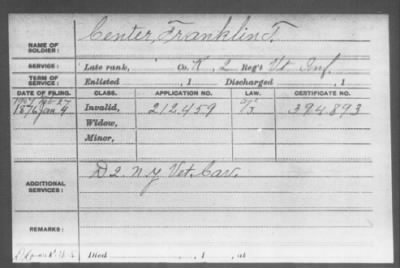 Center, Franklin T.
NAME OF
SOLDIER:
SERVICE: Late rank, Co. K, 2 Reg't Vt. Inf.
TERM OF
SERVICE: Enlisted , 1 Discharged , 1
DATE OF FILING. CLASS. APPLICATION NO. LAW. CERTIFICATE NO.
1876 Jan 9 Invalid, 212.459 394.893
Widow,
Minor,
D 2. N.Y. Vet. Cav.
ADDITIONAL
SERVICES:
REMARKS:
Died , 1 , at